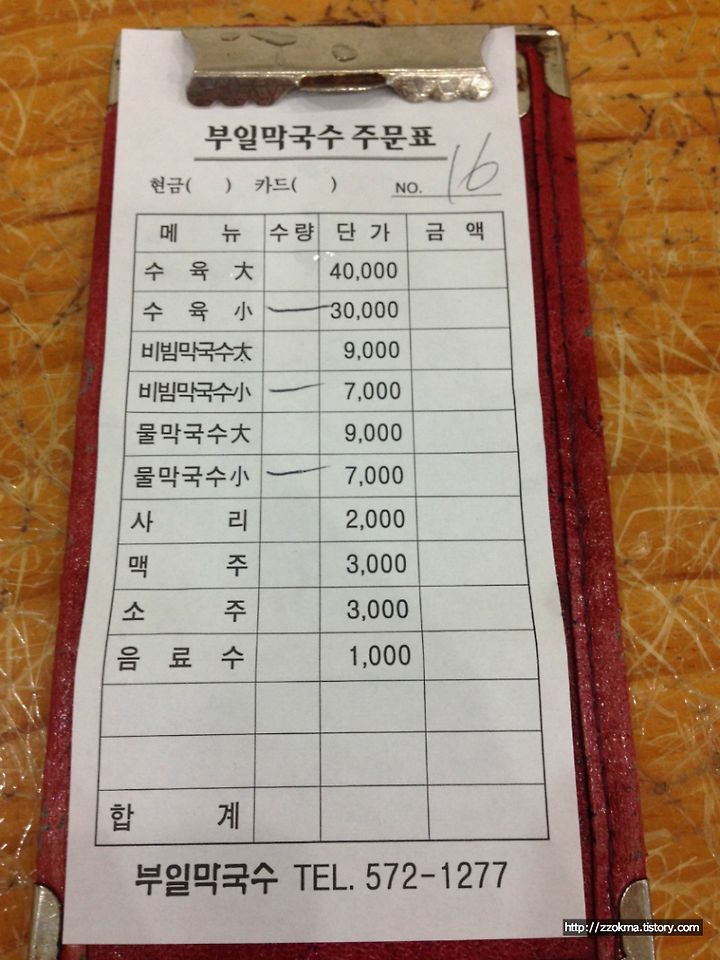 부일막국수 주문표
현금( ) 카드( ) NO. 16
메 뉴 수량 단 가 금 액
수 육 大 40,000
수 육 小 30,000
비빔막국수大 9,000
비빔막국수小 7,000
물막국수大 9,000
물막국수小 7,000
사 리 2,000
맥 주 3,000
소 주 3,000
음 료 수 1,000
합 계
부일막국수 TEL. 572-1277
http://zzokma.tistory.com